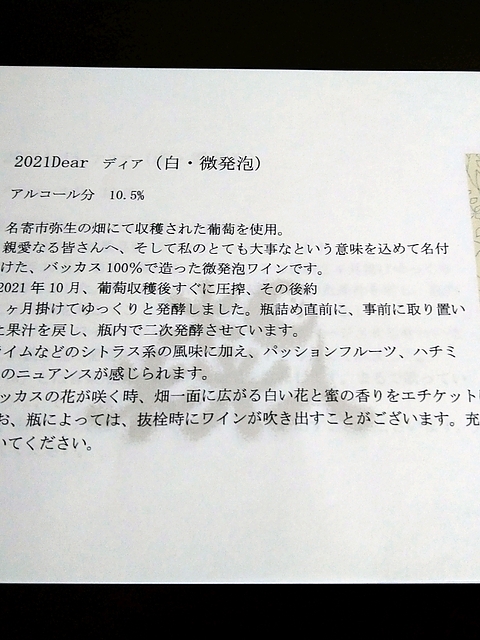 2021Dear ディア（白・微発泡）
アルコール分 10.5%
名寄市弥生の畑にて収穫された葡萄を使用。
親愛なる皆さんへ、そして私のとても大事なという意味を込めて名付
けた、バッカス 100%で造った微発泡ワインです。
2021 年 10 月、葡萄収穫後すぐに圧搾、その後約
ヶ月掛けてゆっくりと発酵しました。瓶詰め直前に、事前に取り置い
果汁を戻し、瓶内で二次発酵させています。
イムなどのシトラス系の風味に加え、パッションフルーツ、ハチミ
のニュアンスが感じられます。
ッカスの花が咲く時、畑一面に広がる白い花と蜜の香りをエチケット
お、瓶によっては、抜栓時にワインが吹き出すことがございます。充
いてください。